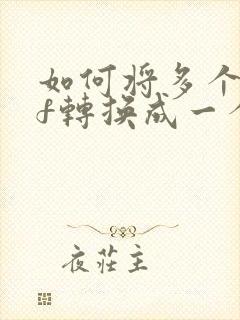 如何将多个
f轉换成一个
夜莊主